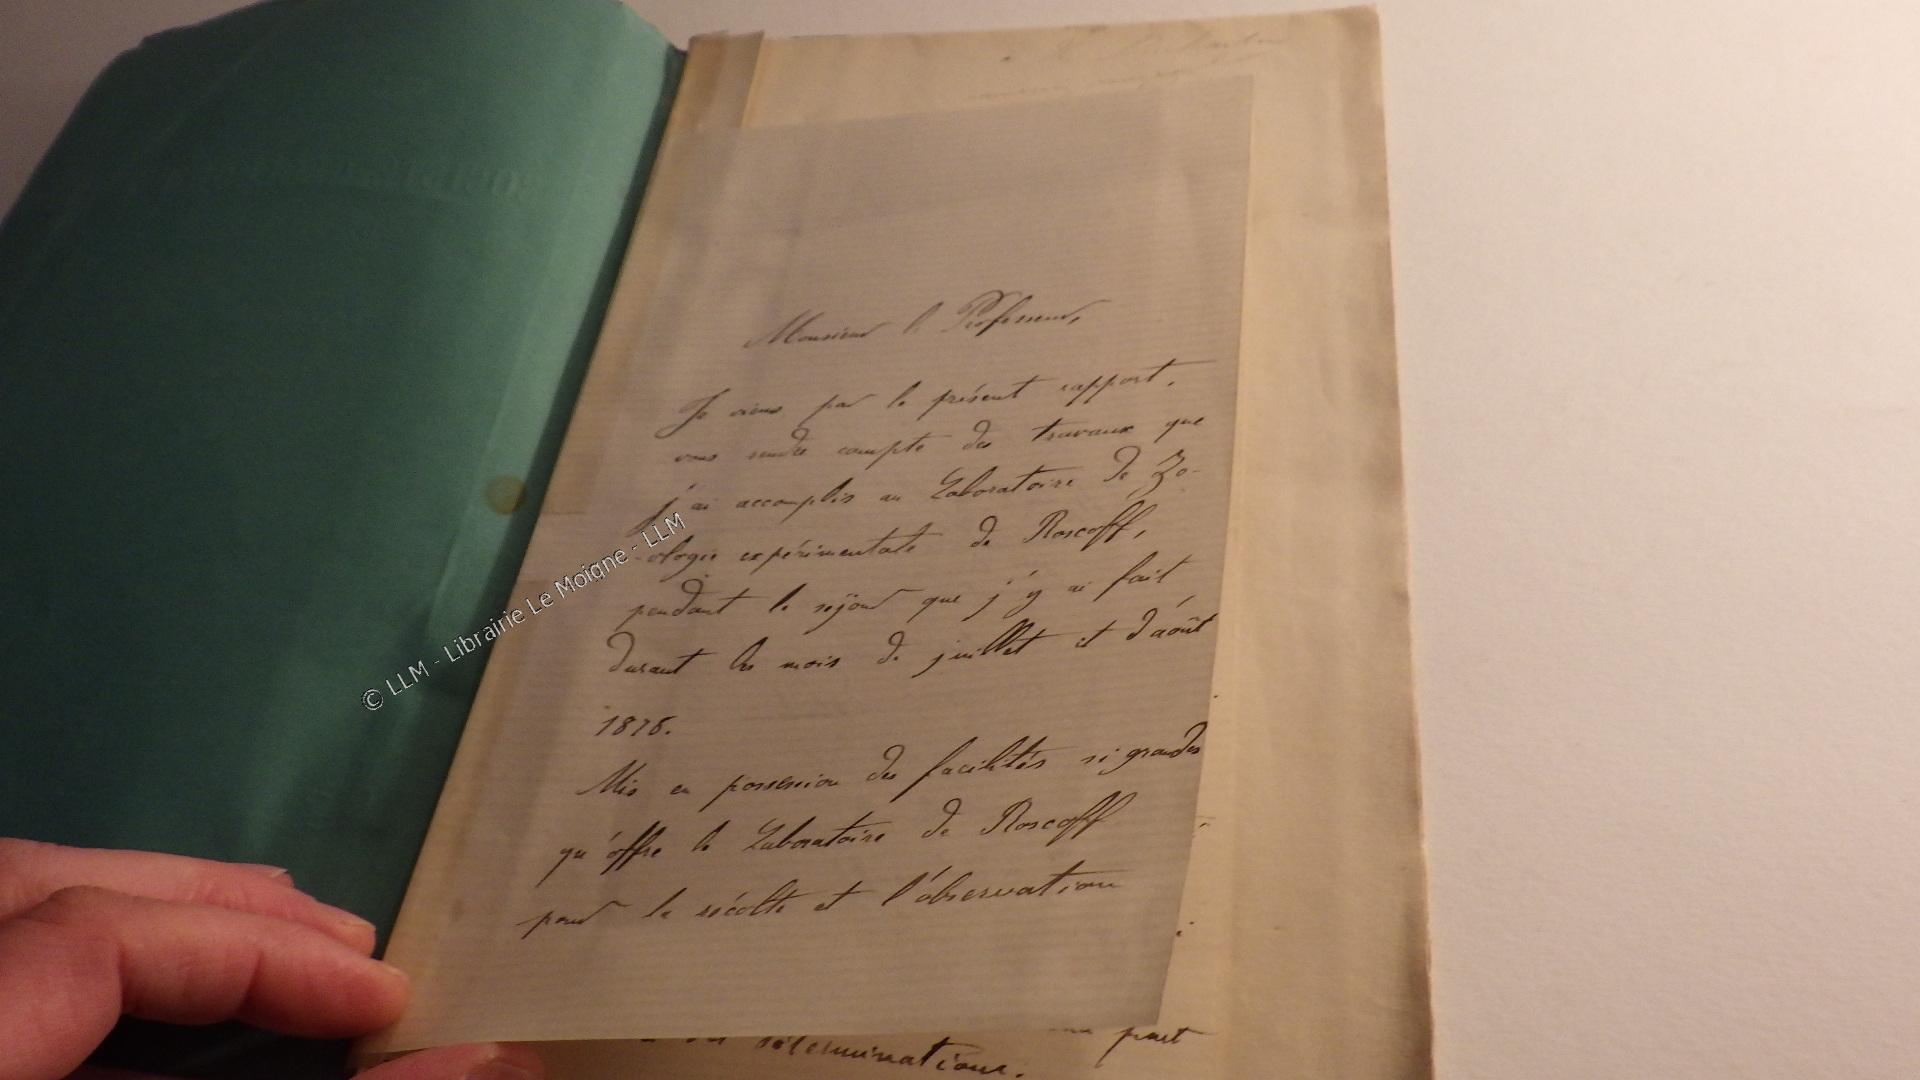 Monsieur le Professeur,
Je viens par le présent rapport,
vous rendre compte des travaux que
j'ai accomplis au Laboratoire de Zo-
-ologie expérimentale de Roscoff,
pendant le séjour que j'y ai fait
durant les mois de juillet et d'août
1878.
Mis en possession des facilités si grandes
qu'offre le Laboratoire de Roscoff
pour la récolte et l'observation
part
déterminations.
© LLM - Librairie Le Moigne - LLM